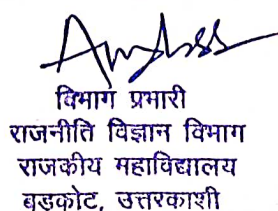 विभाग प्रभारी
राजनीति विज्ञान विभाग
राजकीय महाविद्यालय
बड़कोट, उत्तरकाशी